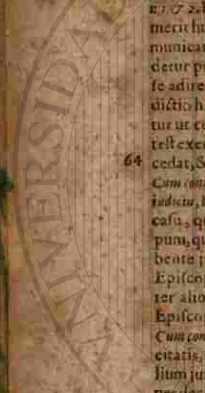 E 1 & 2,
merit hu
municar
detur po
se adire
dictio h
tur ut ce
test exer
64 cedat, &
Cum cont
iudiciu,
casu, qu
puni, qu
bente j
Episco
ter alio
Episco
Cum con
citatis,
lium ju